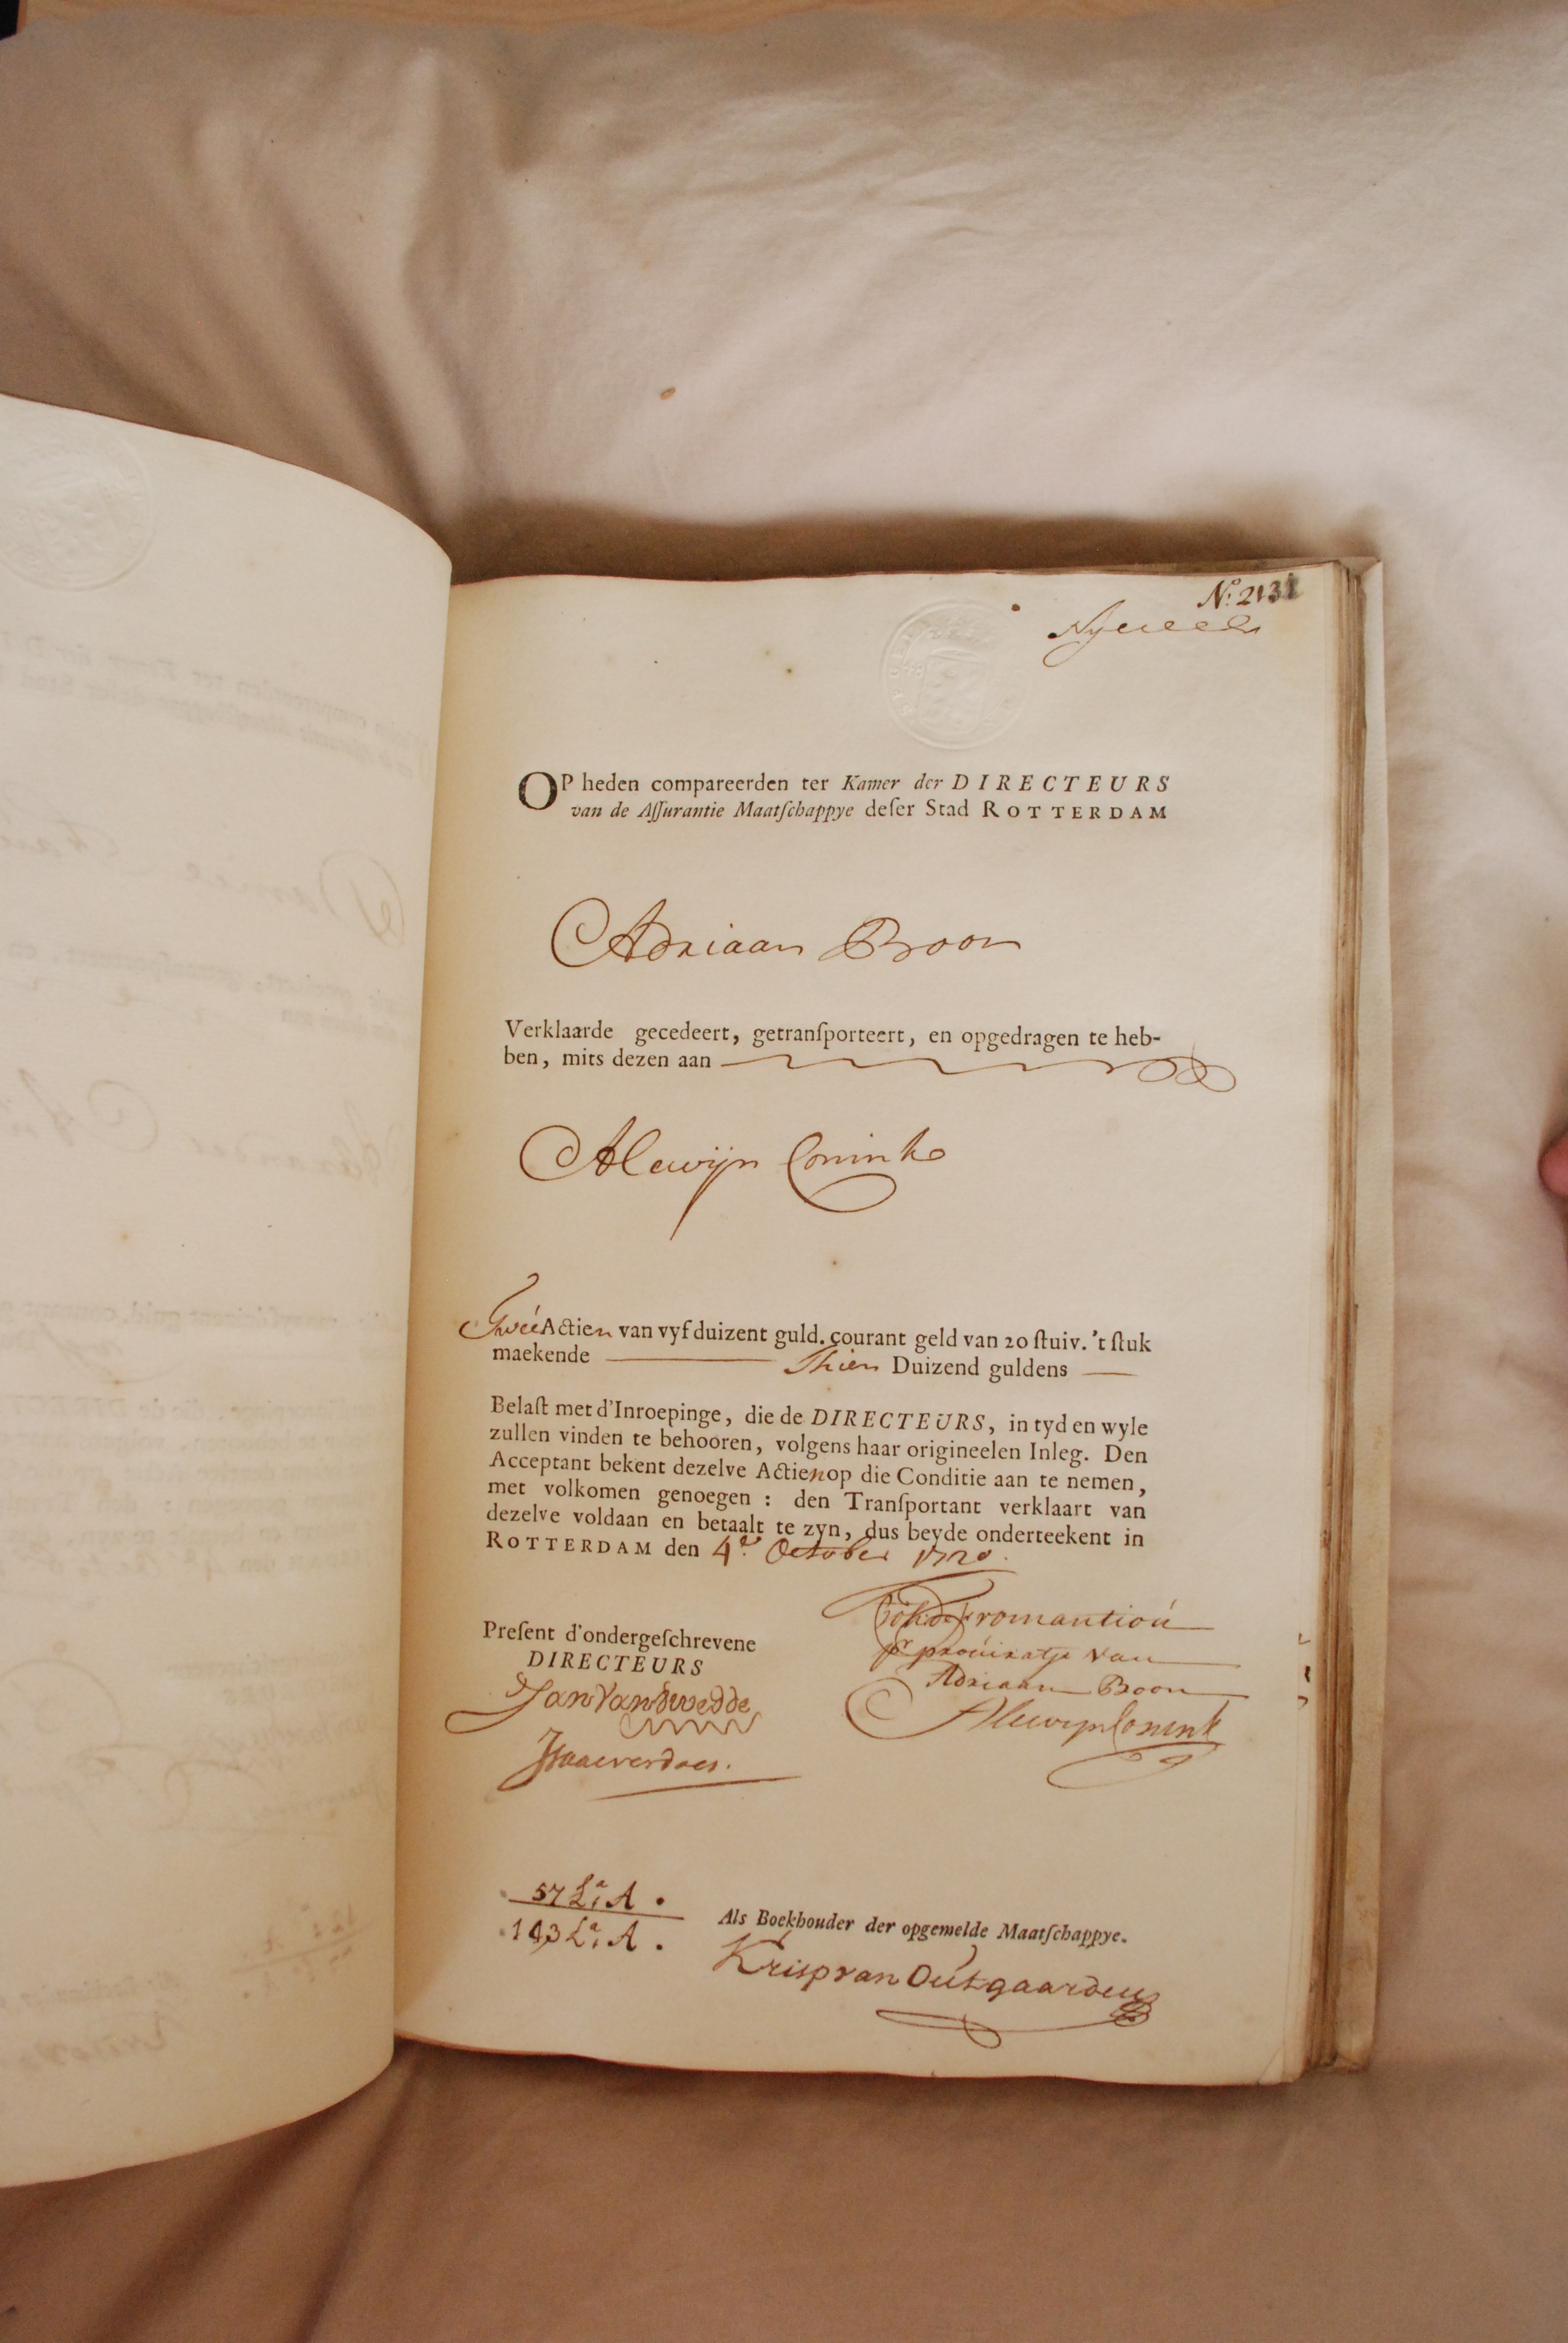 No: 2132
OP heden compareerden ter Kamer der DIRECTEURS
van de Aſſurantie Maatſchappye deſer Stad ROTTERDAM
Adriaan Boon
Verklaarde gecedeert, getranſporteert, en opgedragen te heb-
ben, mits dezen aan
Alewijn Conink
Tweé Actien van vyf duizent guld. courant geld van 20 ſtuiv. 't ſtuk
maekende Thien Duizend guldens
Belaſt met d'Inroepinge, die de DIRECTEURS, in tyd en wyle
zullen vinden te behooren, volgens haar origineelen Inleg. Den
Acceptant bekent dezelve Actien op die Conditie aan te nemen,
met volkomen genoegen : den Tranſportant verklaart van
dezelve voldaan en betaalt te zyn, dus beyde onderteekent in
ROTTERDAM den 4e. October 1720.
Preſent d'ondergeſchrevene
DIRECTEURS
Jan Van Twedde
fromantioú
pr procúratje van
Adriaan Boon
Alewyn Conink
57 La. A.
143 La. A.
Als Boekhouder der opgemelde Maatſchappye.
Krispvan Outgaarden